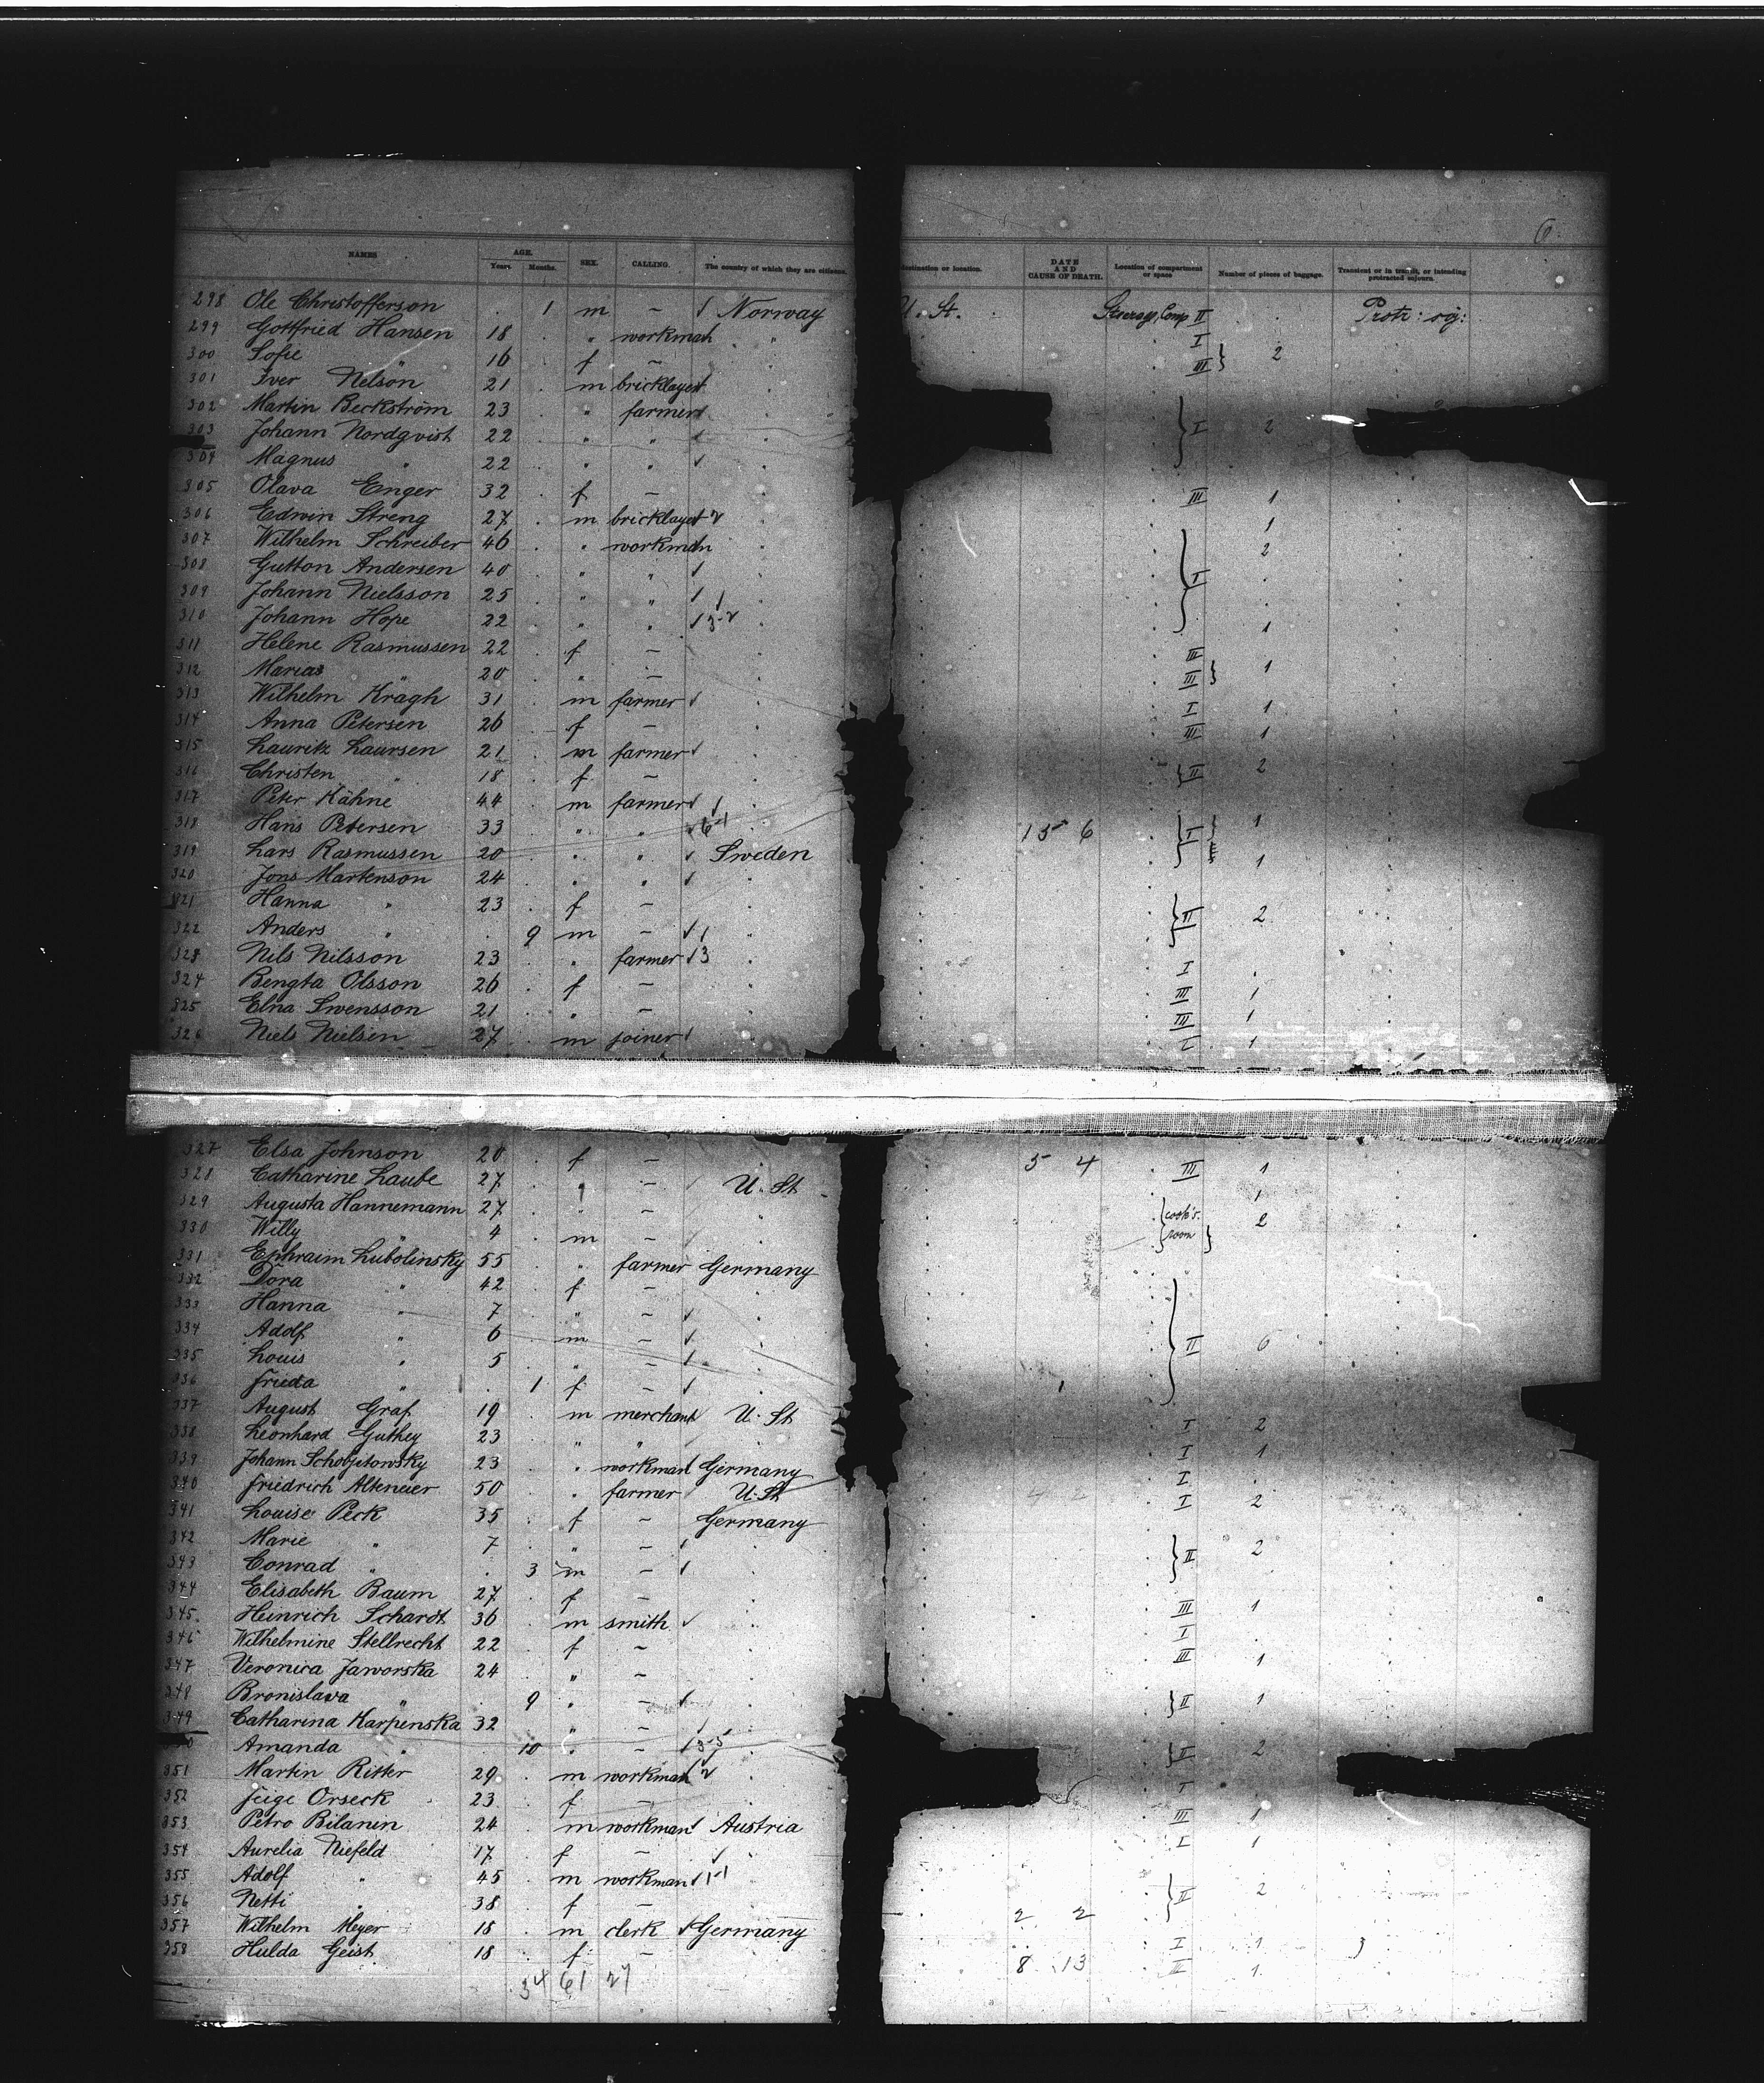 6
NAMES AGE. Years. Months. SEX. CALLING. The country of which they are citizens. destination or location. DATE AND CAUSE OF DEATH. Location of compartment or space Number of pieces of baggage. Transient or in transit, or intending protracted sojourn.
298 Ole Christofferson . 1 m – √ Norway U. St. Steerage, Comp II . Protr: soj:
299 Gottfried Hansen 18 . " workman " I
300 Sofie " 16 . f – III } 2
301 Iver Nelson 21 . m bricklayer √
302 Martin Beckström 23 . " farmer √
303 Johann Nordqvist 22 . " " √ } I 2
304 Magnus " 22 . " " √
305 Olava Enger 32 . f – III 1
306 Edwin Streng 27 . m bricklayer √ 2 1
307 Wilhelm Schreiber 46 . " workman 2
308 Gutton Andersen 40 . " " √ } I .
309 Johann Nielsson 25 . " " √ .
310 Johann Hope 22 . " " √ 3-2 1
311 Helene Rasmussen 22 . f – III
312 Marias " 20 . " – III } 1
313 Wilhelm Kragh 31 . m farmer √ I 1
314 Anna Petersen 26 . f – III 1
315 Lauritz Laursen 21 . m farmer √
316 Christen " 18 . f – } II 2
317 Peter Kähne 44 . m farmer √
318 Hans Petersen 33 . " " √ 6-1 15 6 } I 1
319 Lars Rasmussen 20 . " " √ Sweden 1
320 Jons Martenson 24 . " " √
321 Hanna " 23 . f – } II 2
322 Anders " . 9 m – √ 1
323 Nils Nilsson 23 . " farmer √ 3 I .
324 Bengta Olsson 26 . f – III 1
325 Elna Swensson 21 . " – III 1
326 Niels Nielsen 27 . m joiner √ I 1
327 Elsa Johnson 20 . f – 5 4 III 1
328 Catharine Laube 27 . " – U. St 1
329 Augusta Hannemann 27 . " – { cook's 2
330 Willy " 4 . m – room }
331 Ephraim Lubolinsky 55 . " farmer Germany
332 Dora " 42 . f –
333 Hanna " 7 . " – √
334 Adolf " 6 . m – √ } II 6
335 Louis " 5 . " – √
336 Frieda " . 1 f – √
337 August Graf 19 . m merchant U. St I 2
338 Leonhard Guthey 23 . " " I 1
339 Johann 23 . " workman Germany I .
340 Friedrich Altemeier 50 . " farmer U. St I 2
341 Louise Peck 35 . f – Germany
342 Marie " 7 . " – √ } II 2
343 Conrad " . 3 m – √
344 Elisabeth Baum 27 . f – III 1
345 Heinrich Schardt 36 . m smith √ I .
346 Wilhelmine Stellrecht 22 . f – III 1
347 Veronica Jaworska 24 . " –
348 Bronislava " . 9 " – √ } II 1
349 Catharina Karpenska 32 . " –
Amanda " . 10 " – √ 3-5 } II 2
351 Martin Ritter 29 . m workman √ 2 I .
352 Feige Orseck 23 . f – III 1
353 Petro Bilanin 24 . m workman √ Austria I 1
354 Aurelia Niefeld 17 . f – √
355 Adolf " 45 . m workman √ 1-1 } II 2
356 Netti " 38 . f – 2 2
357 Wilhelm Meyer 18 . m clerk √ Germany I 1
358 Hulda Geist 18 . f – 8 13 III 1
34 61 27